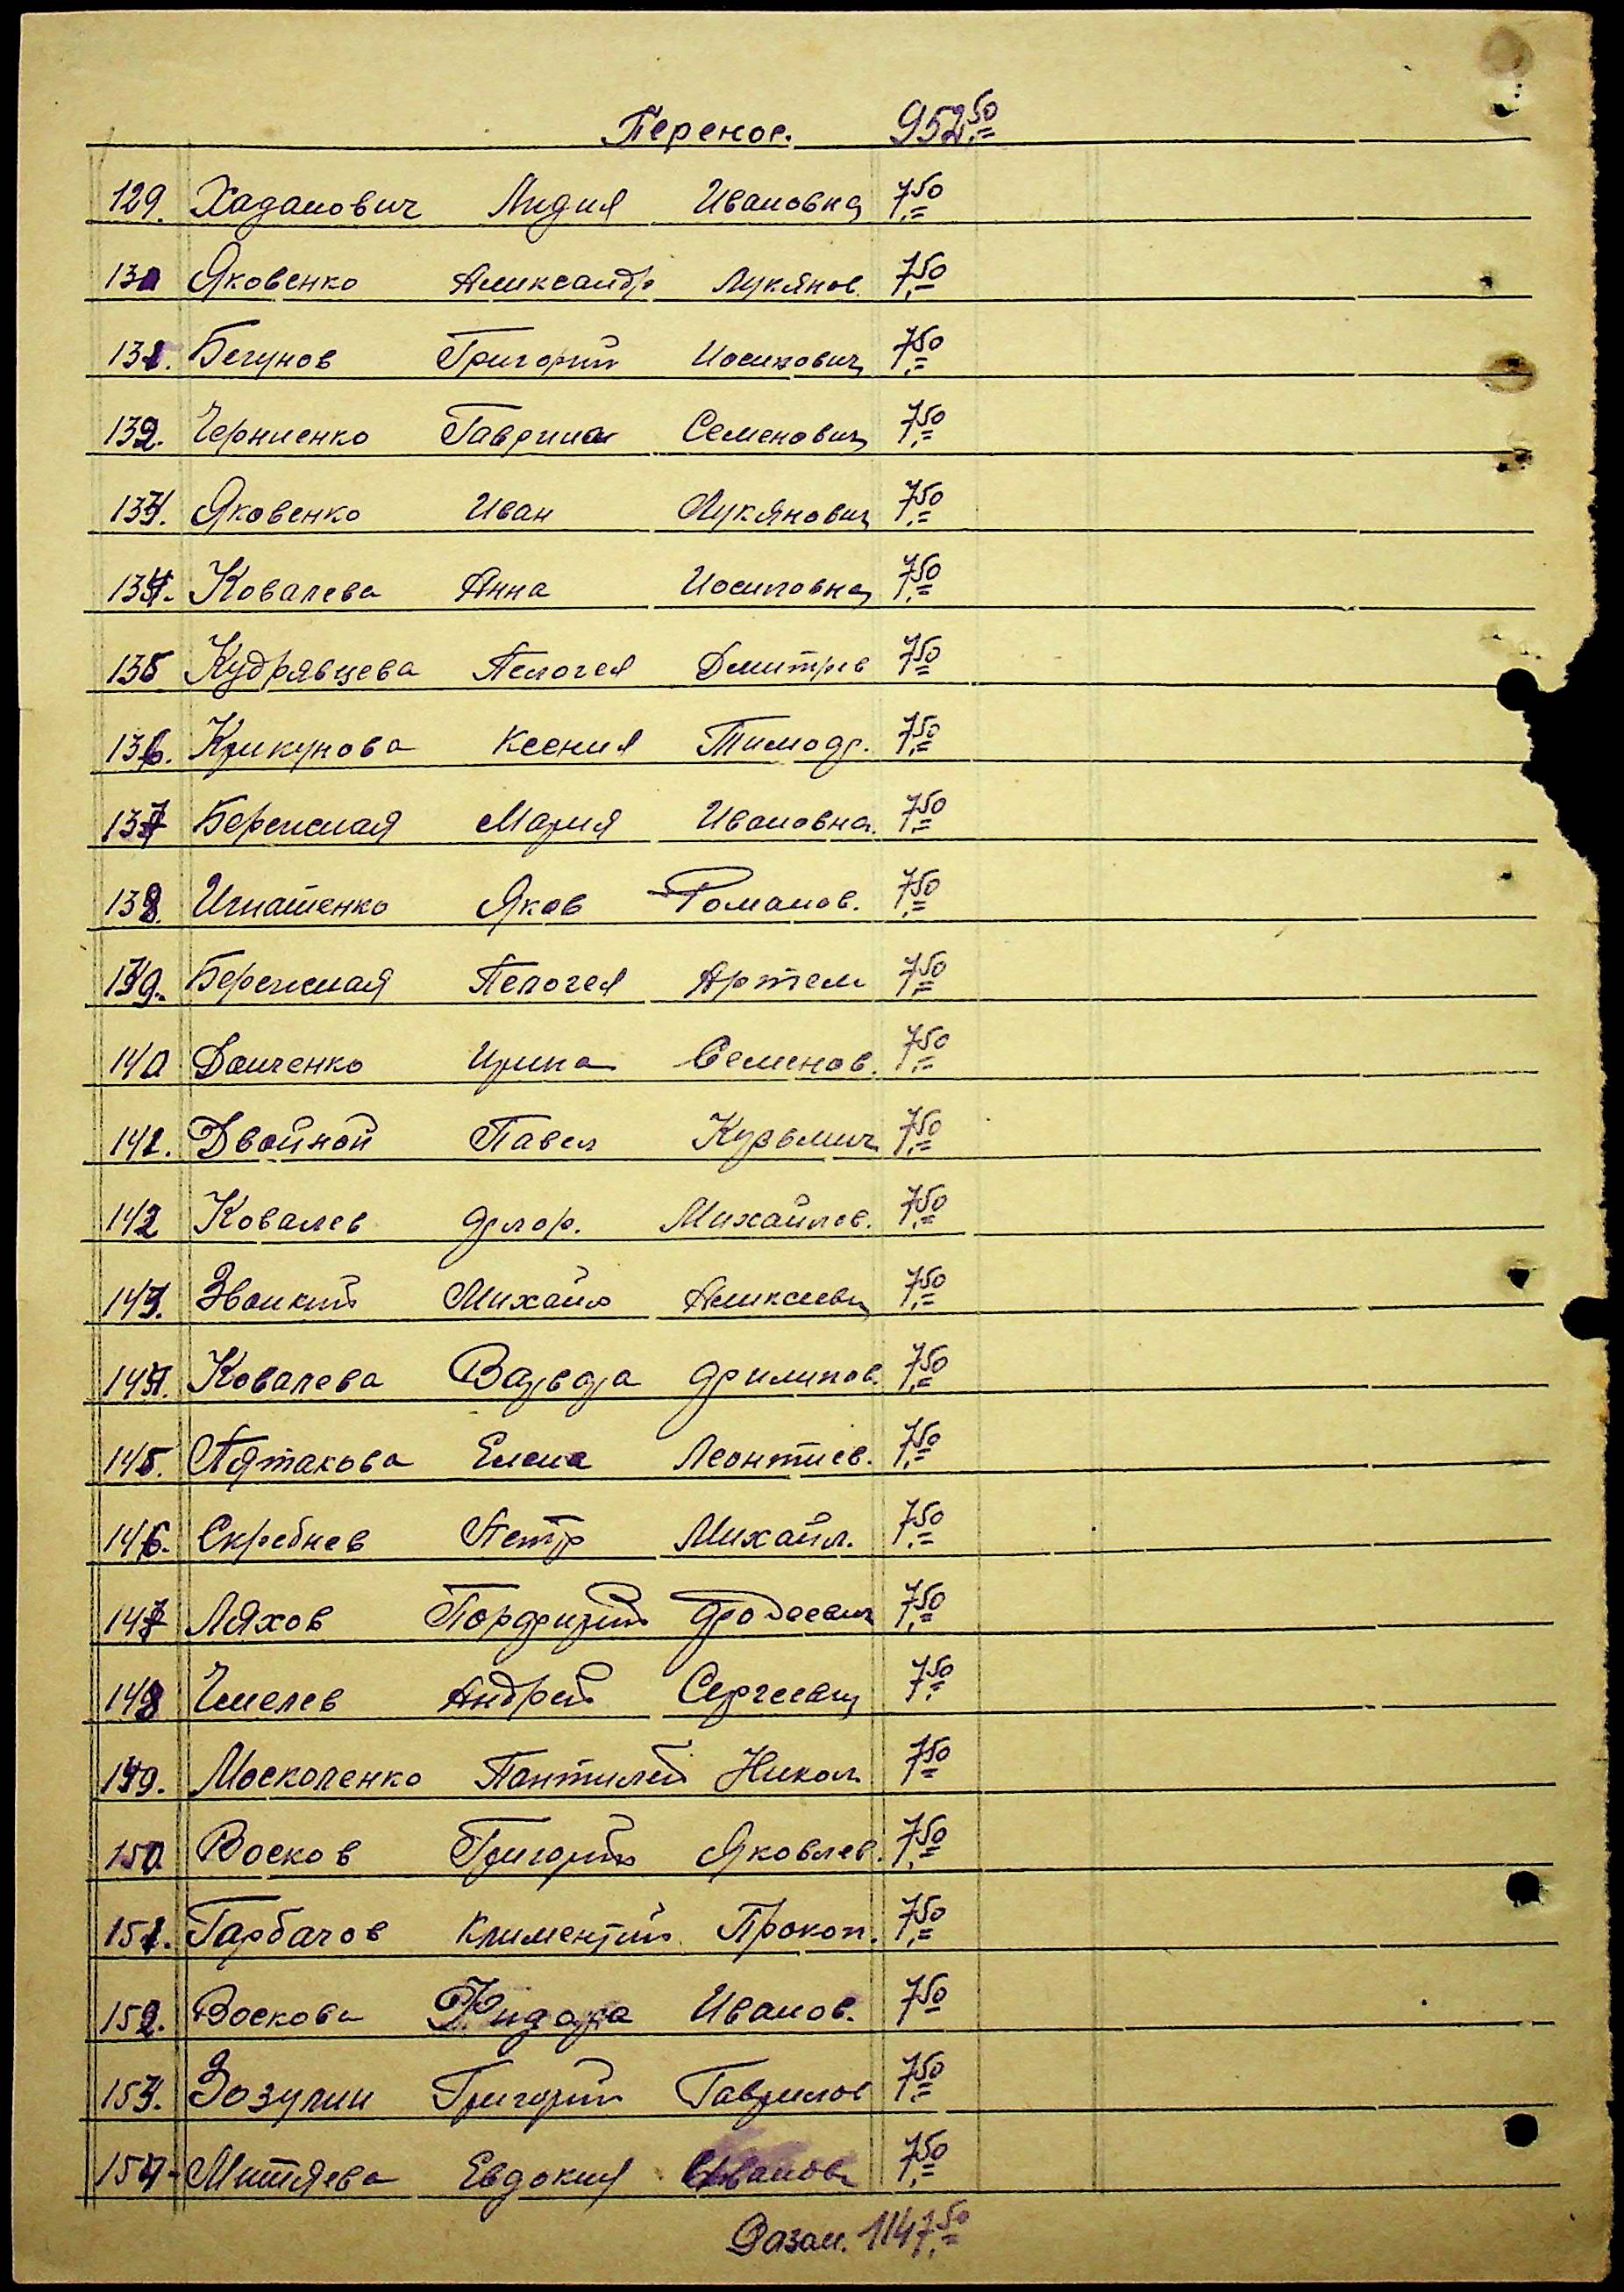 Перенос. 952,50
129. Хаданович Лидия Ивановна 7,50
130 Яковенко Александр Лукянов. 7,50
131. Бегунов Григорий Иосипович 7,50
132. Черниенко Гаврила Семенович 7,50
133. Яковенко Иван Лукянович 7,50
134. Ковалева Анна Иосиповна 7,50
135 Кудрявцева Пелогея Дмитрев 7,50
136. Крикунова Ксения Тимоф. 7,50
137 Бережная Мария Ивановна. 7,50
138. Игнатенко Яков Романов. 7,50
139. Бережная Пелогея Артем 7,50
140 Данченко Ирина Семенов. 7,50
141. Двойной Павел Кузьмич 7,50
142 Ковалев Флор. Михайлов. 7,50
143. Звонкий Михаил Алексеевич 7,50
144. Ковалева Варвара Филипов. 7,50
145. Пятакова Елена Леонтиев. 7,50
146. Скребнев Петр Михайл. 7,50
147 Ляхов Порфирий Фодеевич 7,50
148 Чмелев Андрей Сергеевич 7,50
149. Москаленко Пантилей Никол 7,50
150 Восков Григорий Яковлев. 7,50
151. Гарбачов Климентий Прокоп. 7,50
152. Воскова Иванов. 7,50
153. Зозулин Григорий Гаврилов 7,50
154. Митяева Евдокия Иванов 7,50
Разом. 1147,50